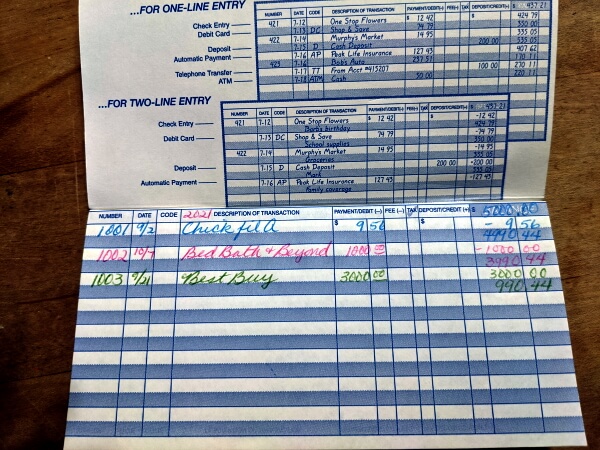 ...FOR ONE-LINE ENTRY
NUMBER DATE CODE DESCRIPTION OF TRANSACTION PAYMENT/DEBIT(-) FEE(-) TAX DEPOSIT/CREDIT(+) $ 437 21
Check Entry 421 7-12 One Stop Flowers $ 12 42 $ 424 79
Debit Card 7-13 DC Shop & Save 74 79 350 00
422 7-14 Murphy's Market 14 95 335 05
Deposit 7-15 D Cash Deposit 200 00 535 05
Automatic Payment 7-16 AP Peak Life Insurance 127 43 407 62
423 7-16 Bob's Auto 237 51
Telephone Transfer 7-17 TT From Acct #415207 100 00 270 11
ATM 7-18 ATM Cash 50 00 220 11
...FOR TWO-LINE ENTRY
NUMBER DATE CODE DESCRIPTION OF TRANSACTION PAYMENT/DEBIT(-) FEE(-) TAX DEPOSIT/CREDIT(+) $ 437 21
Check Entry 421 7-12 One Stop Flowers $ 12 42 $ -12 42
Barb's birthday 424 79
Debit Card 7-13 DC Shop & Save 74 79 -74 79
School supplies 350 00
422 7-14 Murphy's Market 14 95 -14 95
Groceries 335 05
Deposit 7-15 D Cash Deposit 200 00 -200 00
535 05
Automatic Payment 7-16 AP Peak Life Insurance 127 43 -127 43
Family coverage
NUMBER DATE CODE 2021 DESCRIPTION OF TRANSACTION PAYMENT/DEBIT (-) FEE (-) TAX DEPOSIT/CREDIT (+) $ 5000 00
1001 9/2 Chick fil A $ 9 56 $ - 9 56
4990 44
1002 10/7 Bed Bath & Beyond 1000 00 - 1000 00
3990 44
1003 9/31 Best Buy 3000 00 3000 00
990 44